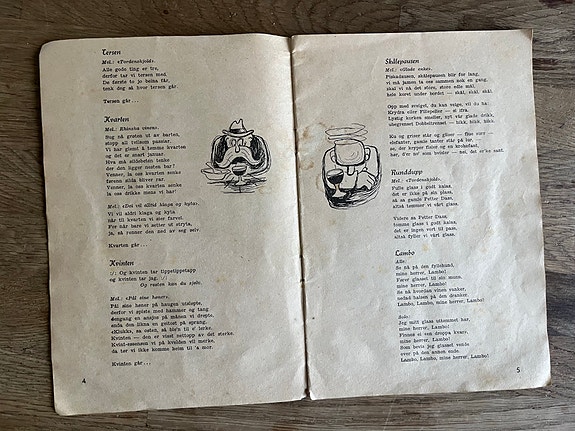 Tersen
Mel.: «Tordenskjold».
Alle gode ting er tre,
derfor tar vi tersen med
De første to jo beina får,
tenk deg så hvor tersen går.
Tersen går...
Kvarten
Mel.: Ehinaba unena.
Sug nå groten ut av barten,
stopp all teinom passiar
Vi har glemt å komme kvarten
og det er snart januar
Hva må slåheten tenke
der den ligger nesten bar?
Venner, la oss kvarten senke
førenn silda bliver rar.
Venner, la oss kvarten senke
la oss drikke mens vi har!
Mel.: «Dei vil alltid klaga og kyta».
Vi vil aldri klaga og kyta
når til kvarten vi sier farvel.
For når bare vi setter ut stryta,
ja, så renner den ned av seg selv.
Kvarten går...
Kvinten
:/: Og kvinten tar tippetippetapp
og kvinten tar jag. :/:
Og resten kan du sjøl.
Mel.: «Pål sine høner».
Pål sine høner på haugen utslepte,
derfor vi spiste med hammer og tang
dengang en ansjos på månen vi drepte,
enda den likna en geitost på sprang.
«Klukk», sa osten, så klo'a til e' lerke.
Kvinten — den er visst nettopp av det sterke.
Kvint-essensen vi på kvulden vil merke,
da tør vi ikke komme heim til 'a mor.
Kvinten går...
4
Skålepausen
Mel.: «Glade enke».
Piskadausen, skålepausen blir for lang,
vi må jamen ta oss sammen nok en gang.
skal vi nå det store, store edle mål,
hele koret under bordet — skål, skål, skål.
Opp med sveiget, du kan velge, vil du ha:
Krydra eller Fillepeller — si det bra.
Lystig korken smeller, nyt vår glade drikk,
ubegrenset Dobbeltrenset — hikk, hikk, hikk.
Ku og griser står og gliser — fine mor —
elefanter, gamle tanter står på lur,
se, der kryper fluler og en krokofant,
her, d'er no' som bevider — nei, det er'ke sant.
Runddupp
Mel.: «Tordenskjold».
Fulle glass i godt kalas,
det er fikn på sin plass,
så sa gamle Petter Dass,
altså tømmer vi vårt glass.
Videre sa Petter Dass,
tomme glass i godt kalas,
det er ingen vort til pass,
altså fyller vi vårt glass.
Lambo
Alle.
Se nå på den fyllehund,
mine herrer, Lambo!
Fører glasset til sin munn.
mine herrer, Lambo!
Se nå hvordan vinen vanker,
nedad halsen på den dranker.
Lambo, Lambo, mine herrer, Lambo!
Solo:
Jeg mitt glass uttømmet har,
mine herrer, Lambo!
Finnes ei een dråppa kvarr,
mine herrer, Lambo!
Som bevis jeg glasset vende
over på den annen ende.
Lambo, Lambo, mine herrer, Lambo!
5